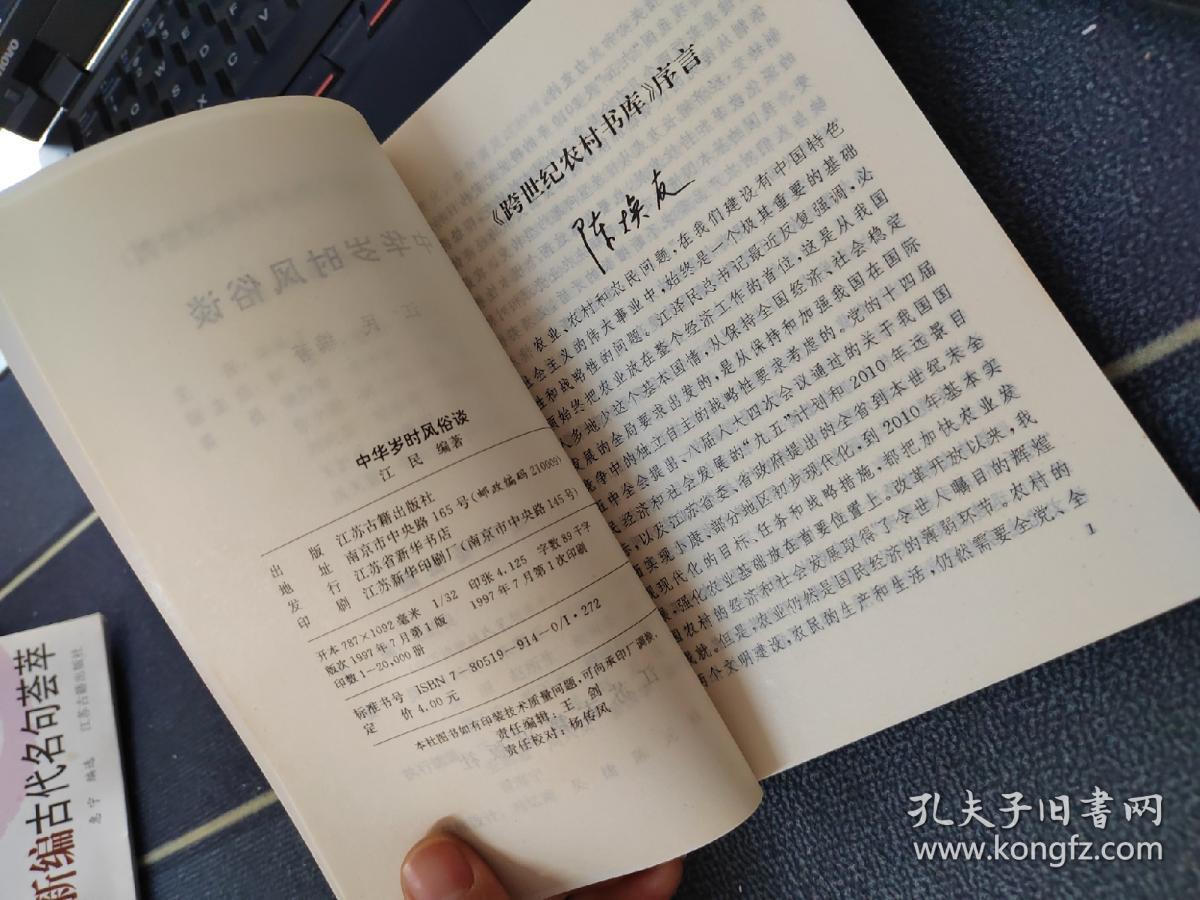 中华岁时风俗谈
江 民 编著
出 版 江苏古籍出版社
地 址 南京市中央路165号(邮政编码210009)
发 行 江苏省新华书店
印 刷 江苏新华印刷厂(南京市中央路145号)
开本787×1092毫米 1/32 印张4.125 字数89千字
版次1997年7月第1版 1997年7月第1次印刷
印数1-20,000册
标准书号 ISBN 7-80519-914-0/I·272
定 价 4.00元
本社图书如有印装技术质量问题,可向承印厂调换。
责任编辑 王 剑
责任校对:杨传凤
《跨世纪农村书库》序言
陈焕友
农业、农村和农民问题,在我们建设有中国特色
社会主义的伟大事业中,始终是一个极其重要的基础
性和战略性的问题。江泽民总书记最近反复强调,必
须始终把农业放在整个经济工作的首位,这是从我国
人多地少这个基本国情,从保持全国经济、社会稳定
发展的全局要求出发的,是从保持和加强我国在国际
竞争中的独立自主的战略性要求考虑的。党的十四届
五中全会提出、八届人大四次会议通过的关于我国国
民经济和社会发展的“九五”计划和2010年远景目
标,以及江苏省委、省政府提出的全省到本世纪末全
面实现小康、部分地区初步现代化,到2010年基本实
现现代化的目标、任务和战略措施,都把加快农业发
展,强化农业基础放在首要位置上。改革开放以来,我
国农村的经济和社会发展取得了令世人瞩目的辉煌
成就。但是,农业仍然是国民经济的薄弱环节。农村的
两个文明建设,农民的生产和生活,仍然需要全党、全
1
新编古代名句荟萃
编选
江苏古籍出版社
lenovo
孔夫子旧書网
www.kongfz.com